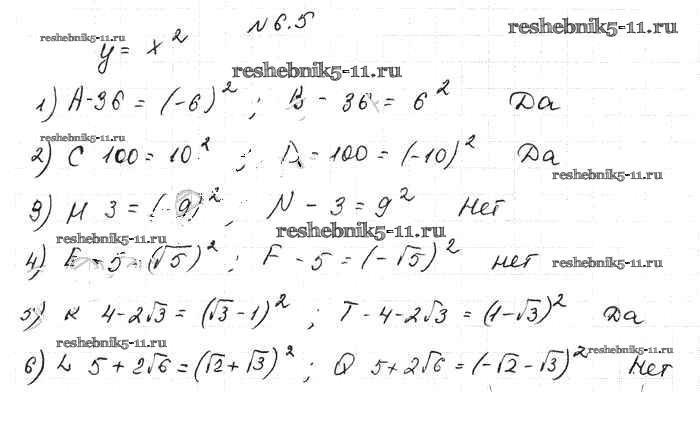 N 6.5
reshebnik5-11.ru
reshebnik5-11.ru
y = x²
reshebnik5-11.ru
1) A - 36 = (-6)² ; B - 36 = 6² Да
reshebnik5-11.ru
2) C 100 = 10² ; D - 100 = (-10)² Да
reshebnik5-11.ru
3) M 3 = (-9)² ; N - 3 = 9² Нет
reshebnik5-11.ru
reshebnik5-11.ru
4) E - 5 = (√5)² ; F - 5 = (-√5)² нет
reshebnik5-11.ru
5) K 4-2√3 = (√3-1)² ; T - 4-2√3 = (1-√3)² Да
reshebnik5-11.ru
reshebnik5-11.ru
6) L 5+2√6 = (√2+√3)² ; Q 5+2√6 = (-√2-√3)² Нет